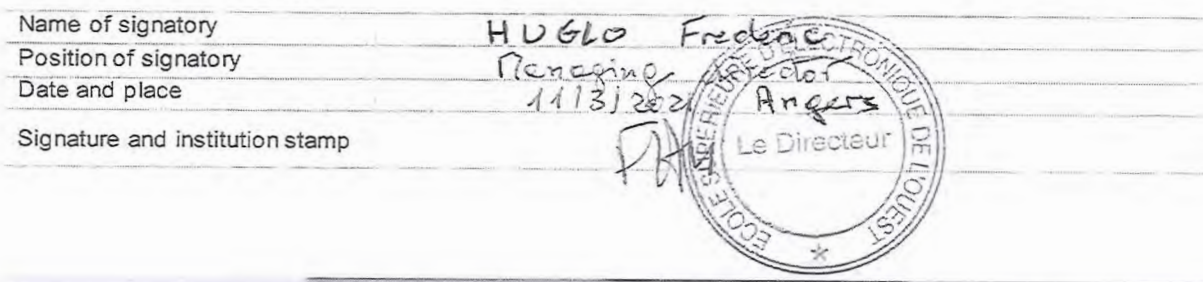 Name of signatory HUGLO Frederic
Position of signatory Managing Director
Date and place 11/3/2021 Angers
Signature and institution stamp
ECOLE SUPERIEURE D'ELECTRONIQUE DE L'OUEST
Le Directeur